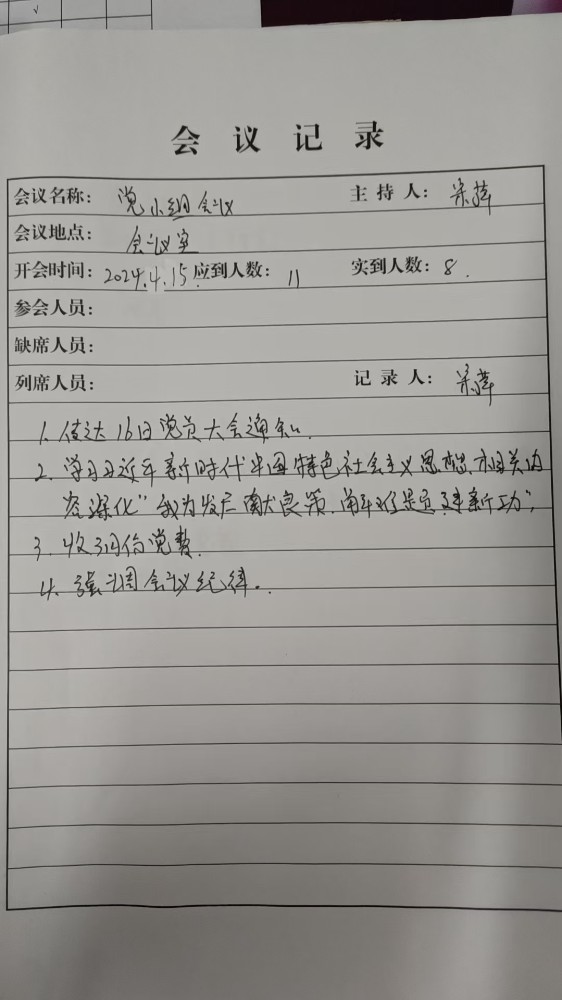 会议记录
会议名称: 党小组会议 主持人: 宋萍
会议地点: 会议室
开会时间: 2024.4.15 应到人数: 11 实到人数: 8.
参会人员:
缺席人员:
列席人员: 记录人: 宋萍
1. 传达16日党员大会通知.
2. 学习习近平新时代中国特色社会主义思想.相关内
容深化“我为发展献良策.解难题建新功”,
3. 收3月份党费.
4. 强调会议纪律.